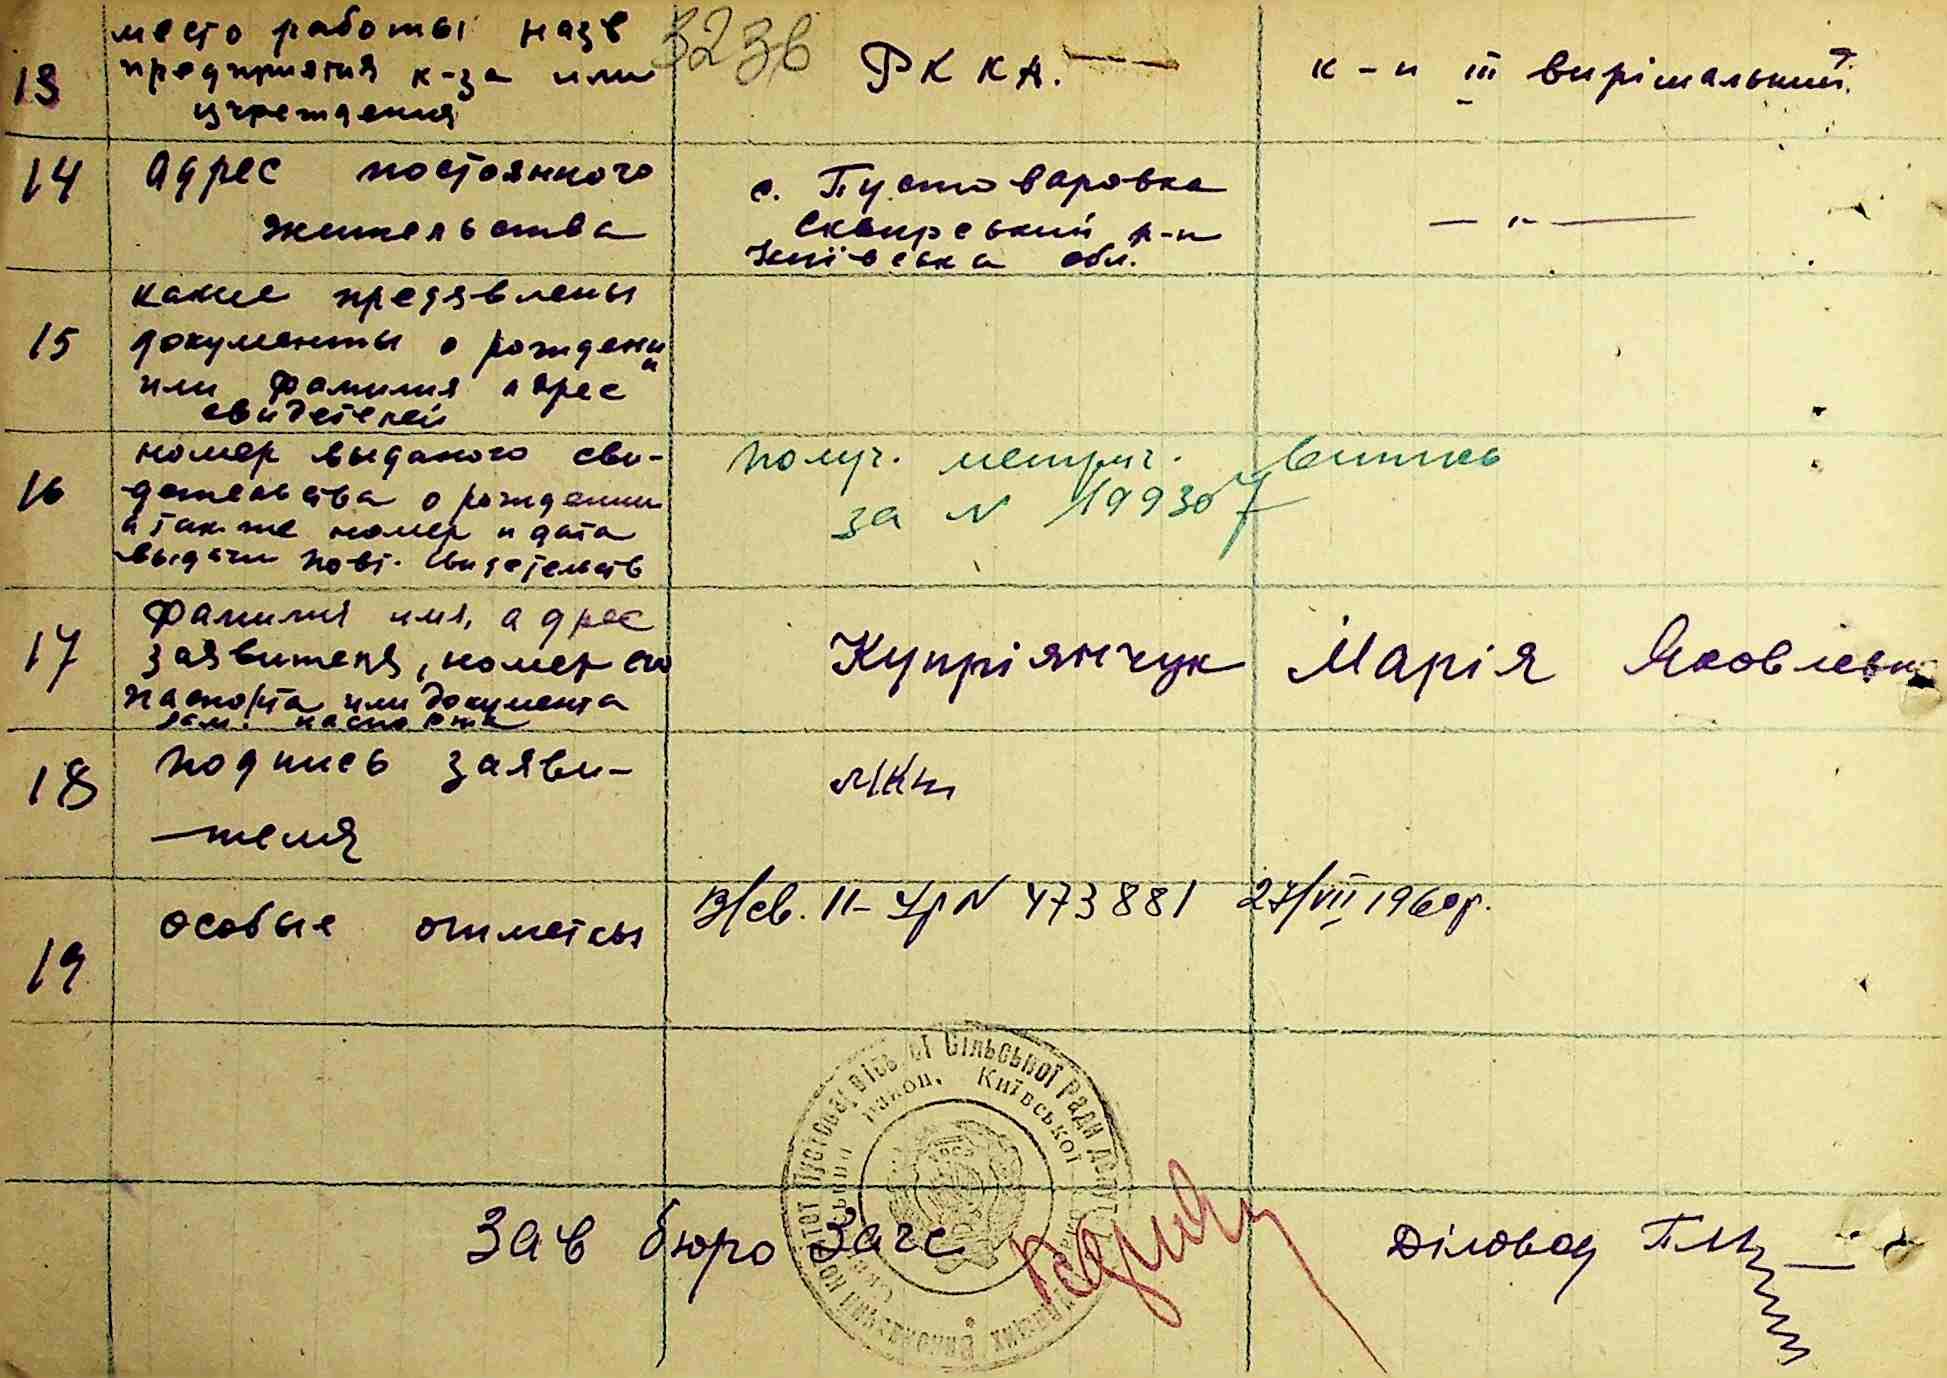 323в
13
место работы назв
предприятия к-за или
учреждения
РККА.
к-п III вирішальний
14
адрес постоянного
жительства
с. Пустоваровка
Сквирський р-н
Київська обл.
— „ —
15
какие предявлены
документы о рождении
или фамилия адрес
свидетелей
16
номер выданого сви-
детельства о рождении
а также номер и дата
выдачи повт. свидетельств
получ. метрич. витпсь
за N 199307
17
фамилия имя, адрес
заявителя, номер его
паспорта или документа
зам. паспорта
Купріянчук Марія Яковлевн
18
подпись заяви-
теля
19
особые отметкы
В/св. II-УР N 473881 27/VII 1960р.
Сільської Ради депут
район, Київської
Виконавчий комітет Пустовар
Зав бюро Загс
Діловод